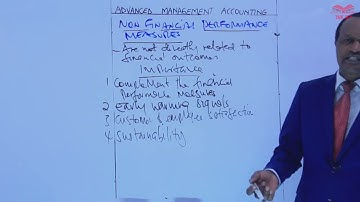 ADVANCED MANAGEMENT ACCOUNTING
NON FINANCIAL PERFORMANCE
MEASURES
- Are not directly related to
financial outcomes
Importance
1 Complement the financial
Performance Measures
2 early warning signals
3 Customer & employee satisfactio
4 sustainability